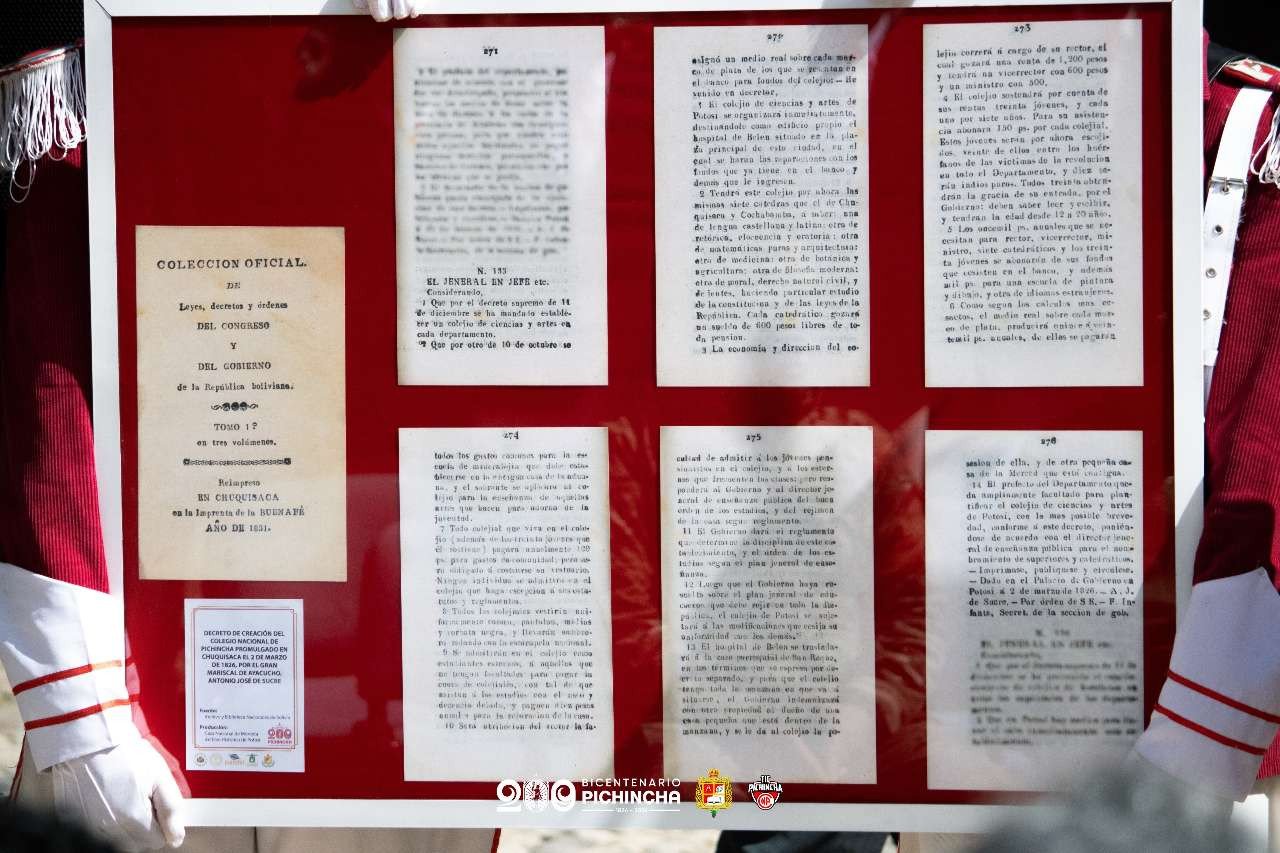 COLECCION OFICIAL.
DE
Leyes, decretos y órdenes
DEL CONGRESO
Y
DEL GOBIERNO
de la República boliviana.
TOMO 1º
en tres volúmenes.
Reimpreso
EN CHUQUISACA
en la Imprenta de la BUENAFÉ
AÑO DE 1831.
DECRETO DE CREACIÓN DEL
COLEGIO NACIONAL DE
PICHINCHA PROMULGADO EN
CHUQUISACA EL 2 DE MARZO
DE 1826, POR EL GRAN
MARISCAL DE AYACUCHO,
ANTONIO JOSÉ DE SUCRE
Fuente:
Archivo y Biblioteca Nacionales de Bolivia
Producción:
Casa Nacional de Moneda
Archivo Histórico de Potosí
271
N. 133
EL JENERAL EN JEFE etc.
Considerando,
1 Que por el decreto supremo de 11
de diciembre se ha mandato estable-
cer un colejio de ciencias y artes en
cada departamento.
2 Que por otro de 10 de octubre se
272
asignó un medio real sobre cada mar-
co de plata de los que se rescatan en
el banco para fondos del colejio; — He
venido en decretar,
1 El colejio de ciencias y artes de
Potosí se organizará inmediatamente,
destinándole como edificio propio el
hospital de Belen situado en la pla-
za principal de esta ciudad, en el
cual se harán las reparaciones con los
fondos que ya tiene en el banco y
demas que le ingresen.
2 Tendrá este colejio por ahora las
mismas siete catedras que el de Chu-
quisaca y Cochabamba, a saber: una
de lengua castellana y latina: otra de
retórica, elocuencia y oratoria: otra
de matemáticas puras y arquitectura:
otra de medicina: otra de botánica y
agricultura: otra de filosofía moderna:
otra de moral, derecho natural civil, y
de jentes, haciendo particular estudio
de la constitucion y de las leyes de la
República. Cada catedrático gozará
un sueldo de 600 pesos libres de to-
da pension.
3 La economía y direccion del co-
273
lejio correrá á cargo de su rector, el
cual gozará una renta de 1,200 pesos
y tendrá un vicerrector con 600 pesos
y un ministro con 500.
4 El colejio sostendrá por cuenta de
sus rentas treinta jóvenes, y cada
uno por siete años. Para su asisten-
cia abonará 150 ps. por cada colejial.
Estos jóvenes serán por ahora escoji-
dos, veinte de ellos entre los huér-
fanos de las víctimas de la revolucion
en todo el Departamento, y diez se-
rán indios puros. Todos treinta obten-
drán la gracia de su entrada, por el
Gobierno: deben saber leer y escribir,
y tendrán la edad desde 12 a 20 años.
5 Los oncemil ps. anuales que se ne-
cesitan para rector, vicerrector, mi-
nistro, siete catedráticos y los trein-
ta jóvenes se abonarán de sus fondos
que ecsisten en el banco, y además
mil ps. para una escuela de pintura
y dibujo, y otra de idiomas estranjeros.
6 Como segun los cálculos mas ec-
sactos, el medio real sobre cada mar-
co de plata, producirá quince á vein-
temil ps. anuales, de ellos se pagarán
274
todos los gastos comunes para la es-
cuela de mineralojía que debe esta-
blecerse en la antigua casa de la adua-
na, y el sobrante se aplicará al co-
lejio para la enseñanza de aquellos
artes que hacen para adorno de la
juventud.
7 Todo colejial que viva en el cole-
jio (además de los treinta jóvenes que
él sostiene) pagará anualmente 120
ps. para gastos en comunidad; pero se-
rá obligado á costearse su vestuario.
Ningun individuo se admitirá en el
colejio que haga escepcion á sus esta-
tutos y reglamentos.
8 Todos los colejiales vestirán uni-
formemente casaca, pantalon, medias
y corbata negra, y llevarán sombre-
ro redondo con la escarapela nacional.
9 Se admitirán en el colejio como
estudiantes esternos, á aquellos que
no tengan facultades para pagar la
cuota de colejiales, con tal de que
asistan á los estudios con el aseo y
decencia debida, y paguen diez pesos
anual es para la reparacion de la casa.
10 Será atribucion del rector la fa-
275
cultad de admitir á los jóvenes pen-
sionistas en el colejio, y a los ester-
nos que frecuenten las clases; pero res-
ponderá al Gobierno y al director je-
neral de enseñanza pública del buen
orden de los estudios, y del réjimen
de la casa segun reglamento.
11 El Gobierno dará el reglamento
que determine la disciplina de este es-
tablecimiento, y el órden de los es-
tudios segun el plan jeneral de ense-
ñanza.
12 Luego que el Gobierno haya re-
suelto sobre el plan jeneral de edu-
cacion que debe rejir en toda la Re-
pública, el colejio de Potosí se suje-
tará á las modificaciones que ecsija su
uniformidad con los demás.
13 El hospital de Belen se traslada-
rá á la casa parroquial de San Roque,
en los términos que se espresa por de-
creto separado, y para que el colejio
tenga toda la manzana en que va á
situarse, el Gobierno indemnizará
con otra propiedad al dueño de una
casa pequeña que está dentro de la
manzana, y se le da al colejio la po-
276
sesion de ella, y de otra pequeña ca-
sa de la Merced que está contigua.
14 El prefecto del Departamento que-
da ampliamente facultado para plan-
tificar el colejio de ciencias y artes
de Potosí, con la mas posible breve-
dad, conforme á este decreto, ponién-
dose de acuerdo con el director jene-
ral de enseñanza pública para el nom-
bramiento de superiores y catedráticos.
— Imprímase, publíquese y circúlese.
— Dado en el Palacio de Gobierno en
Potosí á 2 de marzo 1826. — A. J.
de Sucre. — Por órden de S E. — F. In-
fante, Secret. de la seccion de gob.
200 BICENTENARIO
PICHINCHA
TIC
PICHINCHA